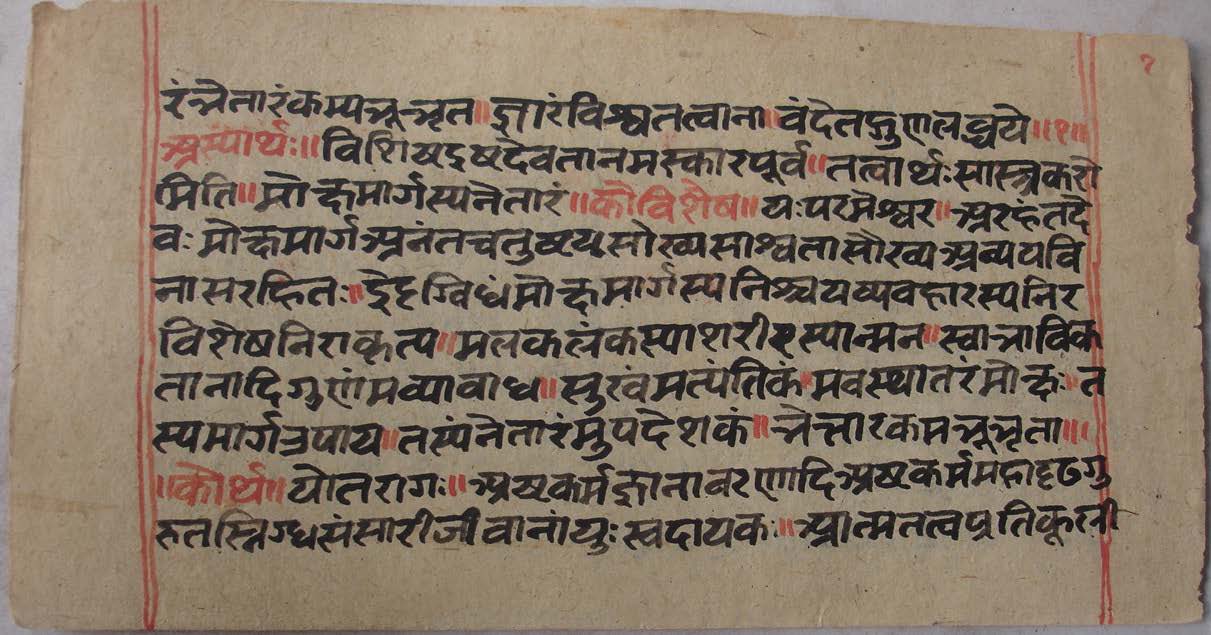 २
रं न्नेतारं कम्मभूभृत ॥ ज्ञारं विश्वतत्वाना ॥ वंदेतद्गुणलब्धये ॥१॥
अस्यार्थः ॥ विशिष्टइष्टदेवतानमस्कारपूर्व ॥ तत्वार्थः सास्त्रकरौ
मिति ॥ मोक्षमार्गस्यनेतारं ॥ कोविशेष ॥ यः परमेश्वर ॥ अरहंतदे
वः मोक्षमार्ग अनंतचतुष्टयसौख्यसाश्वतासौख्यअव्ययवि
नासरहितः ॥ ईदृग्विधंमोक्षमार्गस्यनिश्चयव्यवहारस्यनिर
विशेषनिराकृत्य ॥ मलकलंकस्याशरीरस्यान्मन ॥ स्वाभाविक
तानादिगुणंमव्यावाध ॥ सुखंमत्यंतिकमवस्थातरंमोक्षः त
स्यमार्गउपाय ॥ तस्यंनेतारंमुपदेशकं ॥ भेत्तारकमभूभृता ॥
॥ कोर्थ ॥ योतरागः ॥ अष्टकर्मज्ञानावरणादिअष्टकर्ममहादृढगु
रुतस्निग्धसंसारीजीवानांयुः स्वदायकः ॥ आत्मतत्वप्रतिकूली